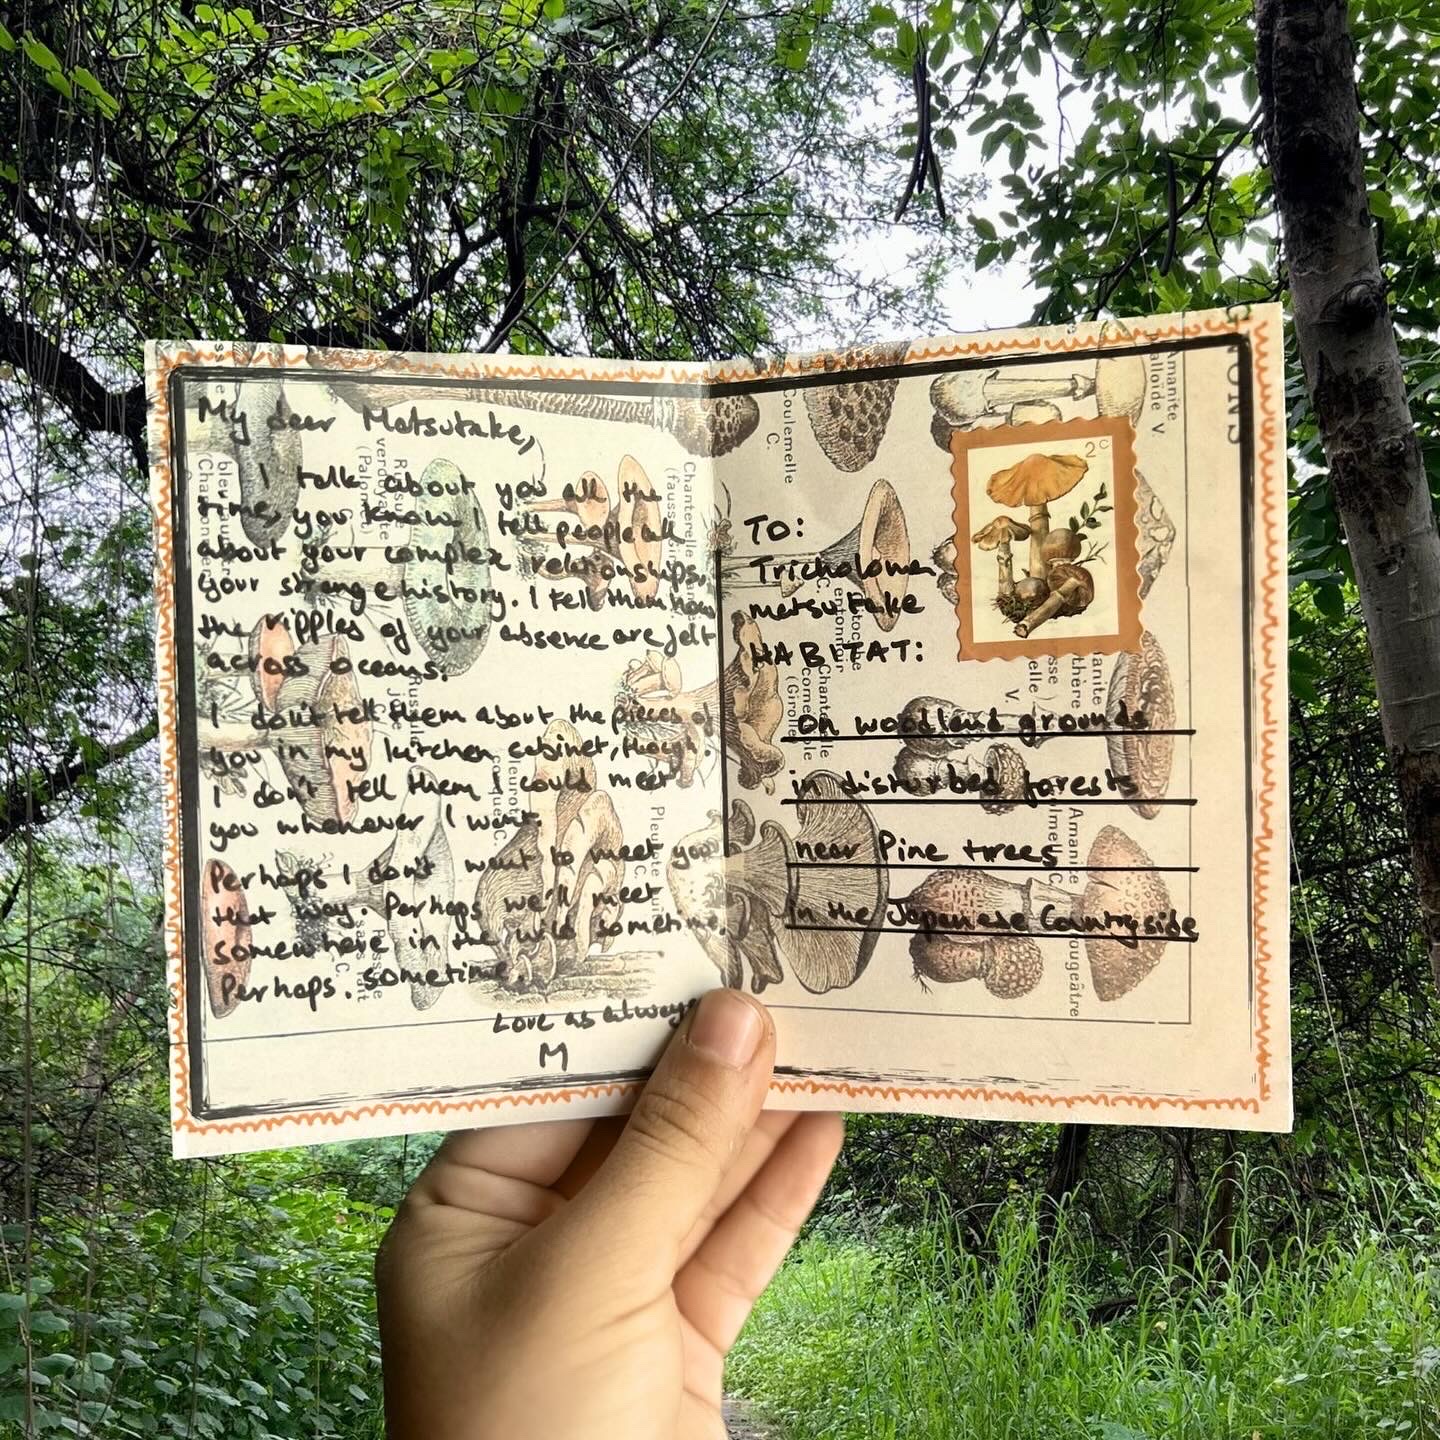 My dear Matsutake,
I talk about you all the
time, you know. I tell people all
about your complex relationships,
your strange history. I tell them how
the ripples of your absence are felt
across oceans.
I don't tell them about the pieces of
you in my kitchen cabinet, though.
I don't tell them I could meet
you whenever I want.
Perhaps I don't want to meet you
that way. Perhaps we'll meet
somewhere in the wild sometime.
Perhaps. sometime.
Love as always
M
TO:
Tricholoma
matsutake
HABITAT:
on woodland grounds
in disturbed forests
near Pine trees
in the Japanese Countryside
2c
Coulemelle
C.
Amanite
phalloïde V.
Chanterelle
Pleurote
C.
Amanite
rougeâtre